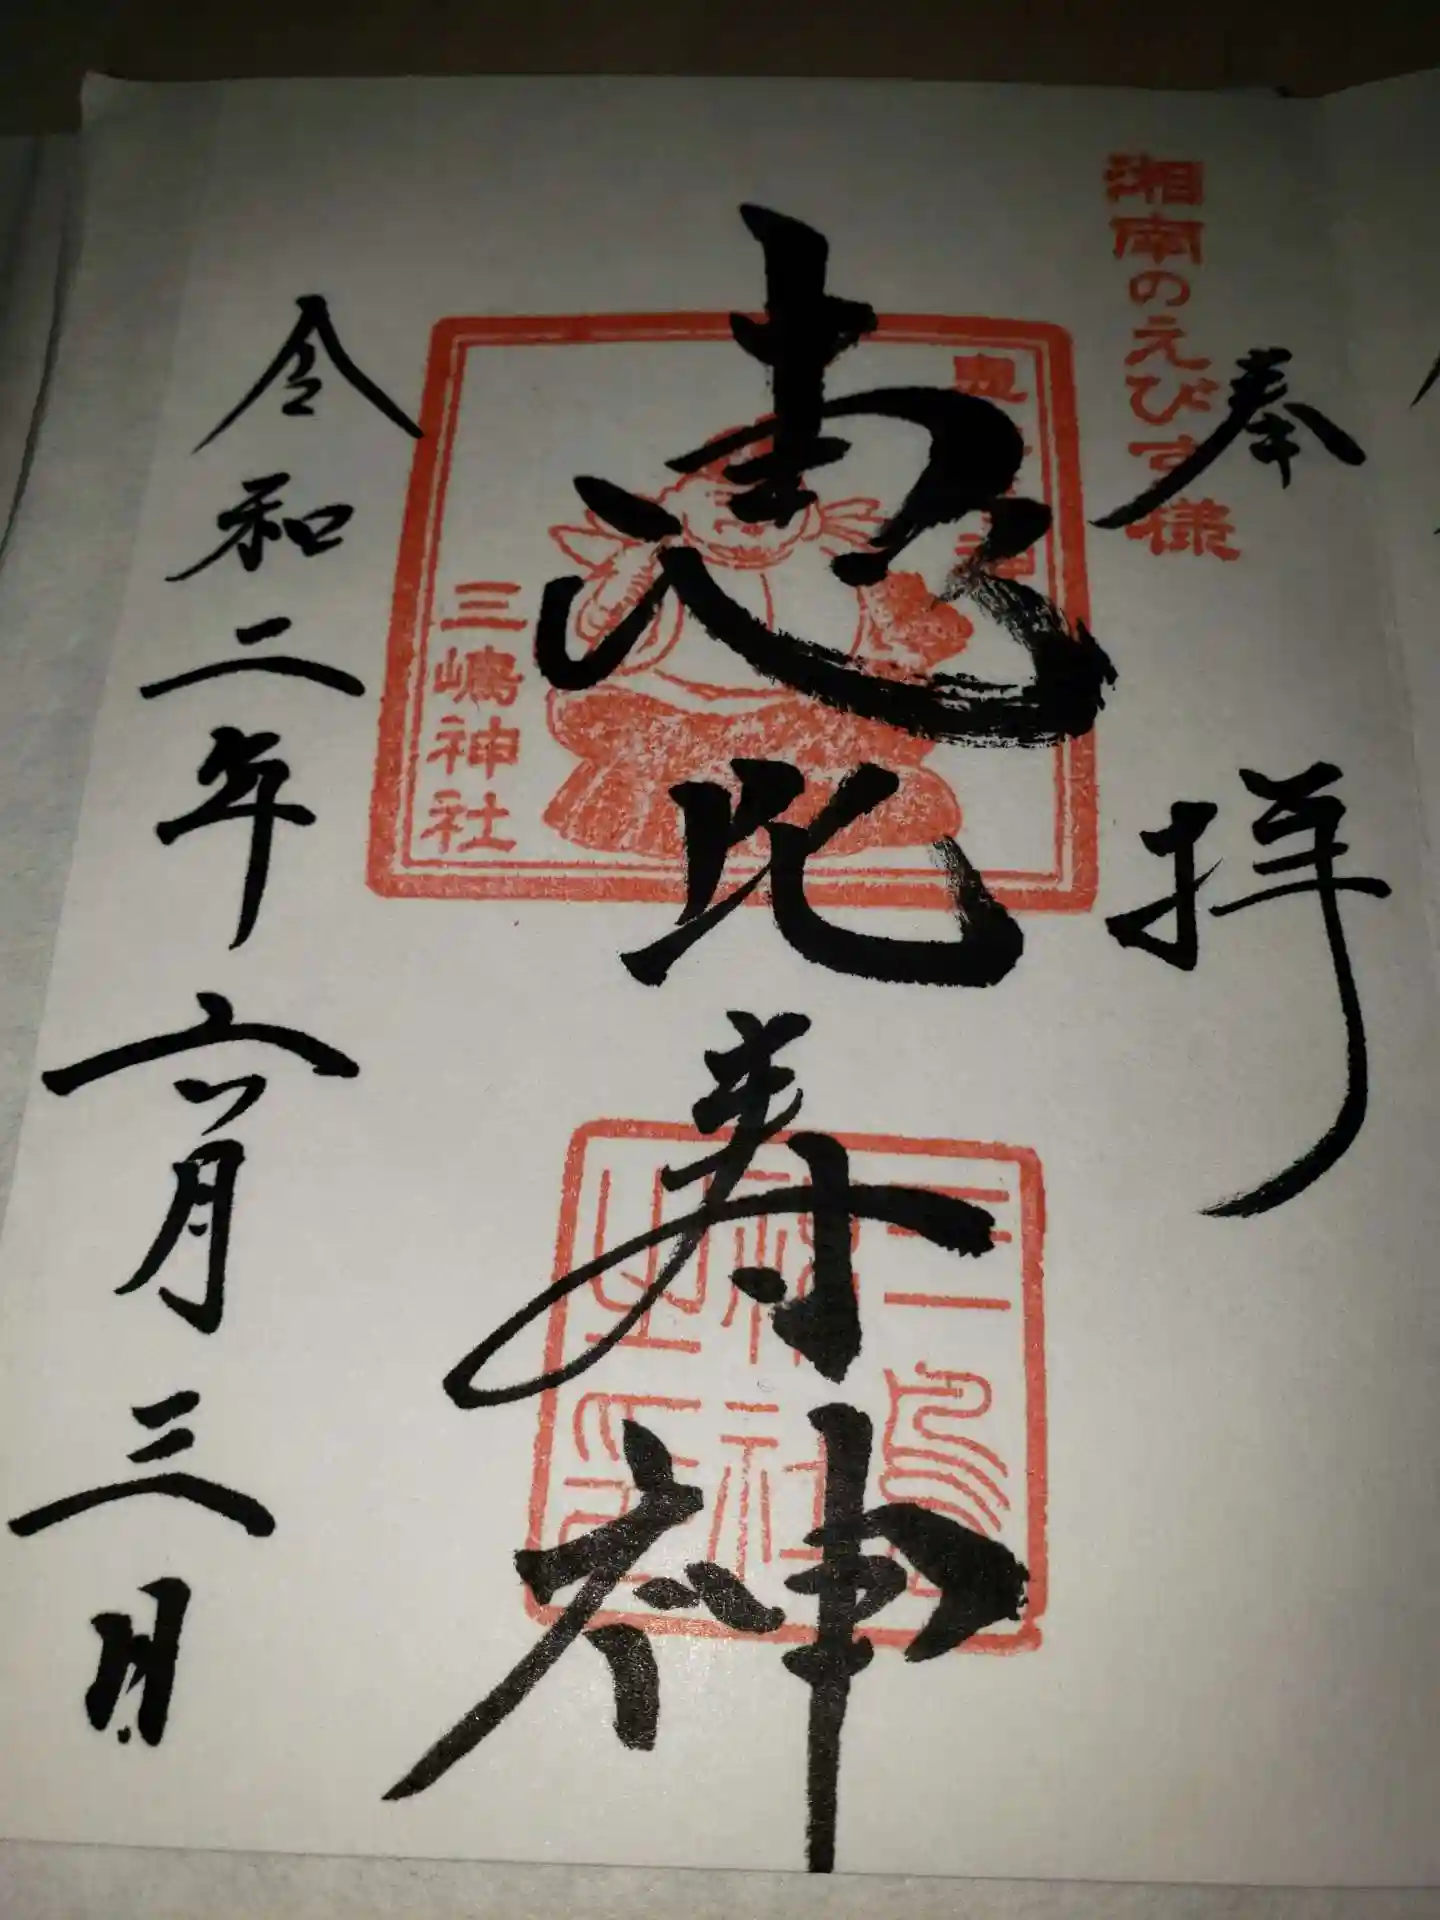 湘南のえびす様
奉拝
恵比寿神
三嶋神社
三嶋神社之印
令和二年六月三日